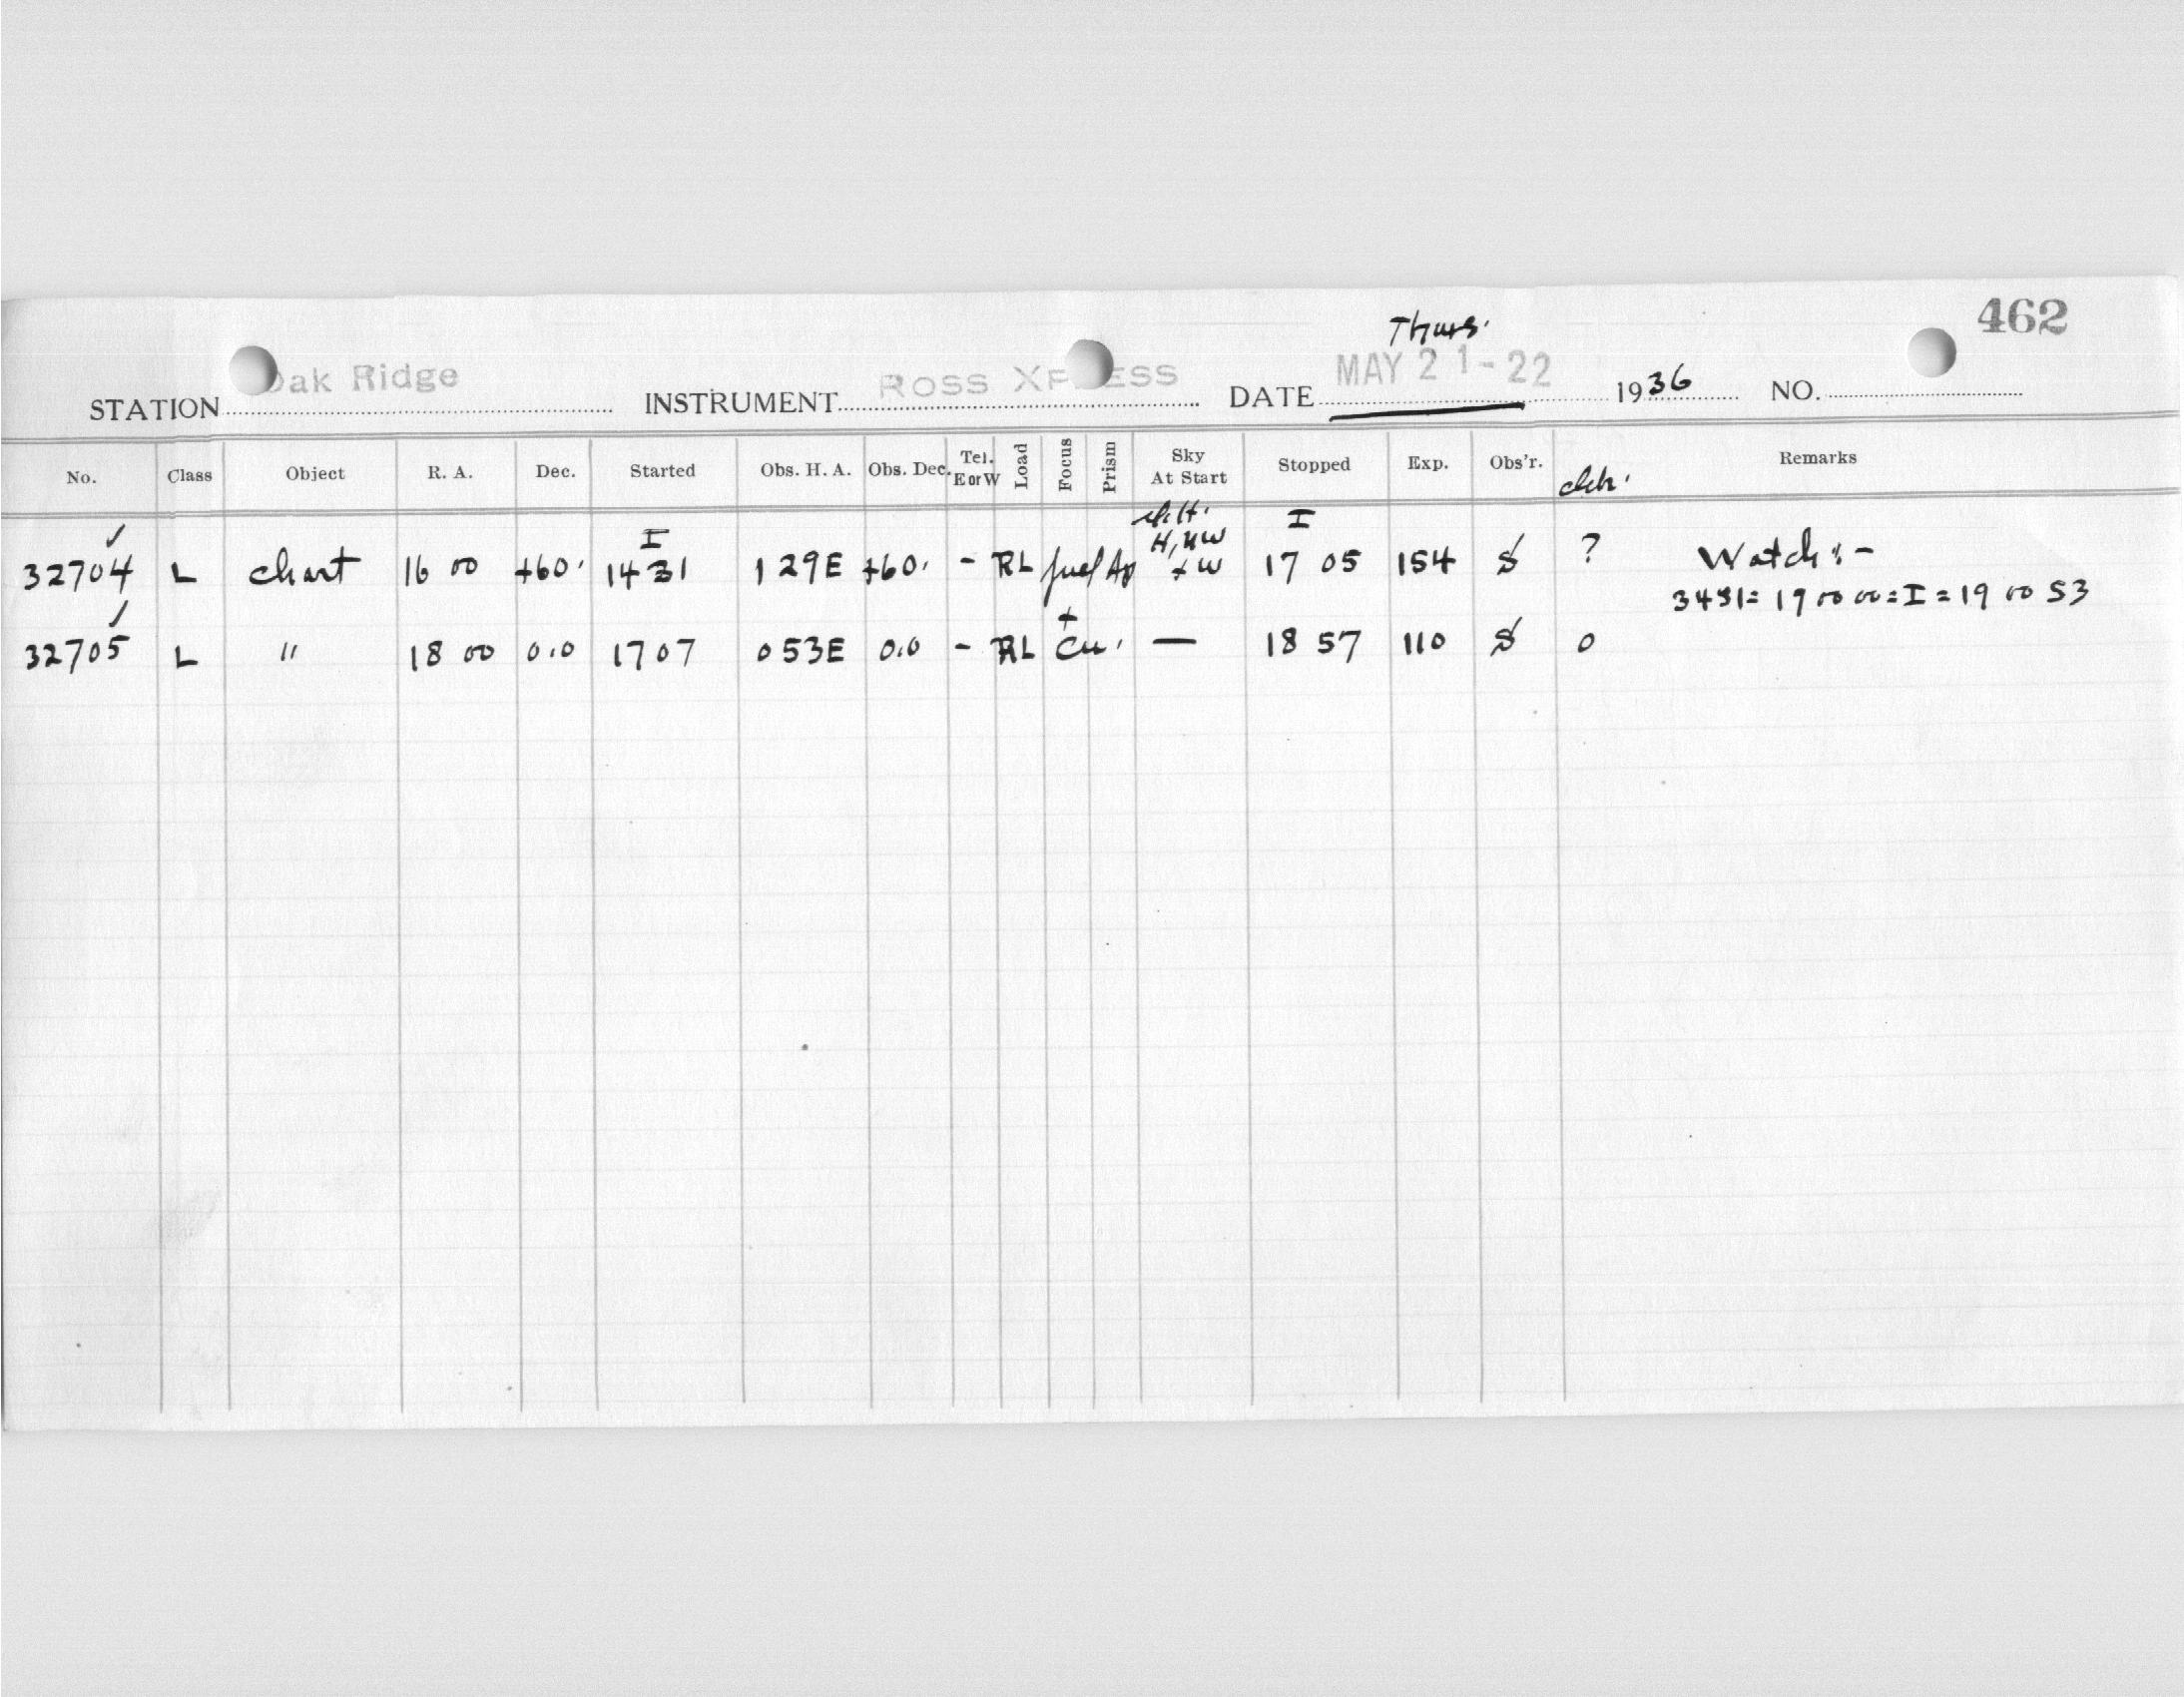 462
Thurs.
STATION Oak Ridge INSTRUMENT ROSS XPRESS DATE MAY 21-22 1936 NO.
No. Class Object R. A. Dec. Started Obs. H. A. Obs. Dec. Tel. E or W Load Focus Prism Sky At Start Stopped Exp. Obs'r. clch. Remarks
I H, NW I
32704 L chart 16 00 +60. 14 31 1 29E +60. - RL + W 17 05 154 S ? Watch :-
3481= 19 00 00 = I = 19 00 53
32705 L " 18 00 0.0 17 07 0 53E 0.0 - RL + Cu. — 18 57 110 S 0